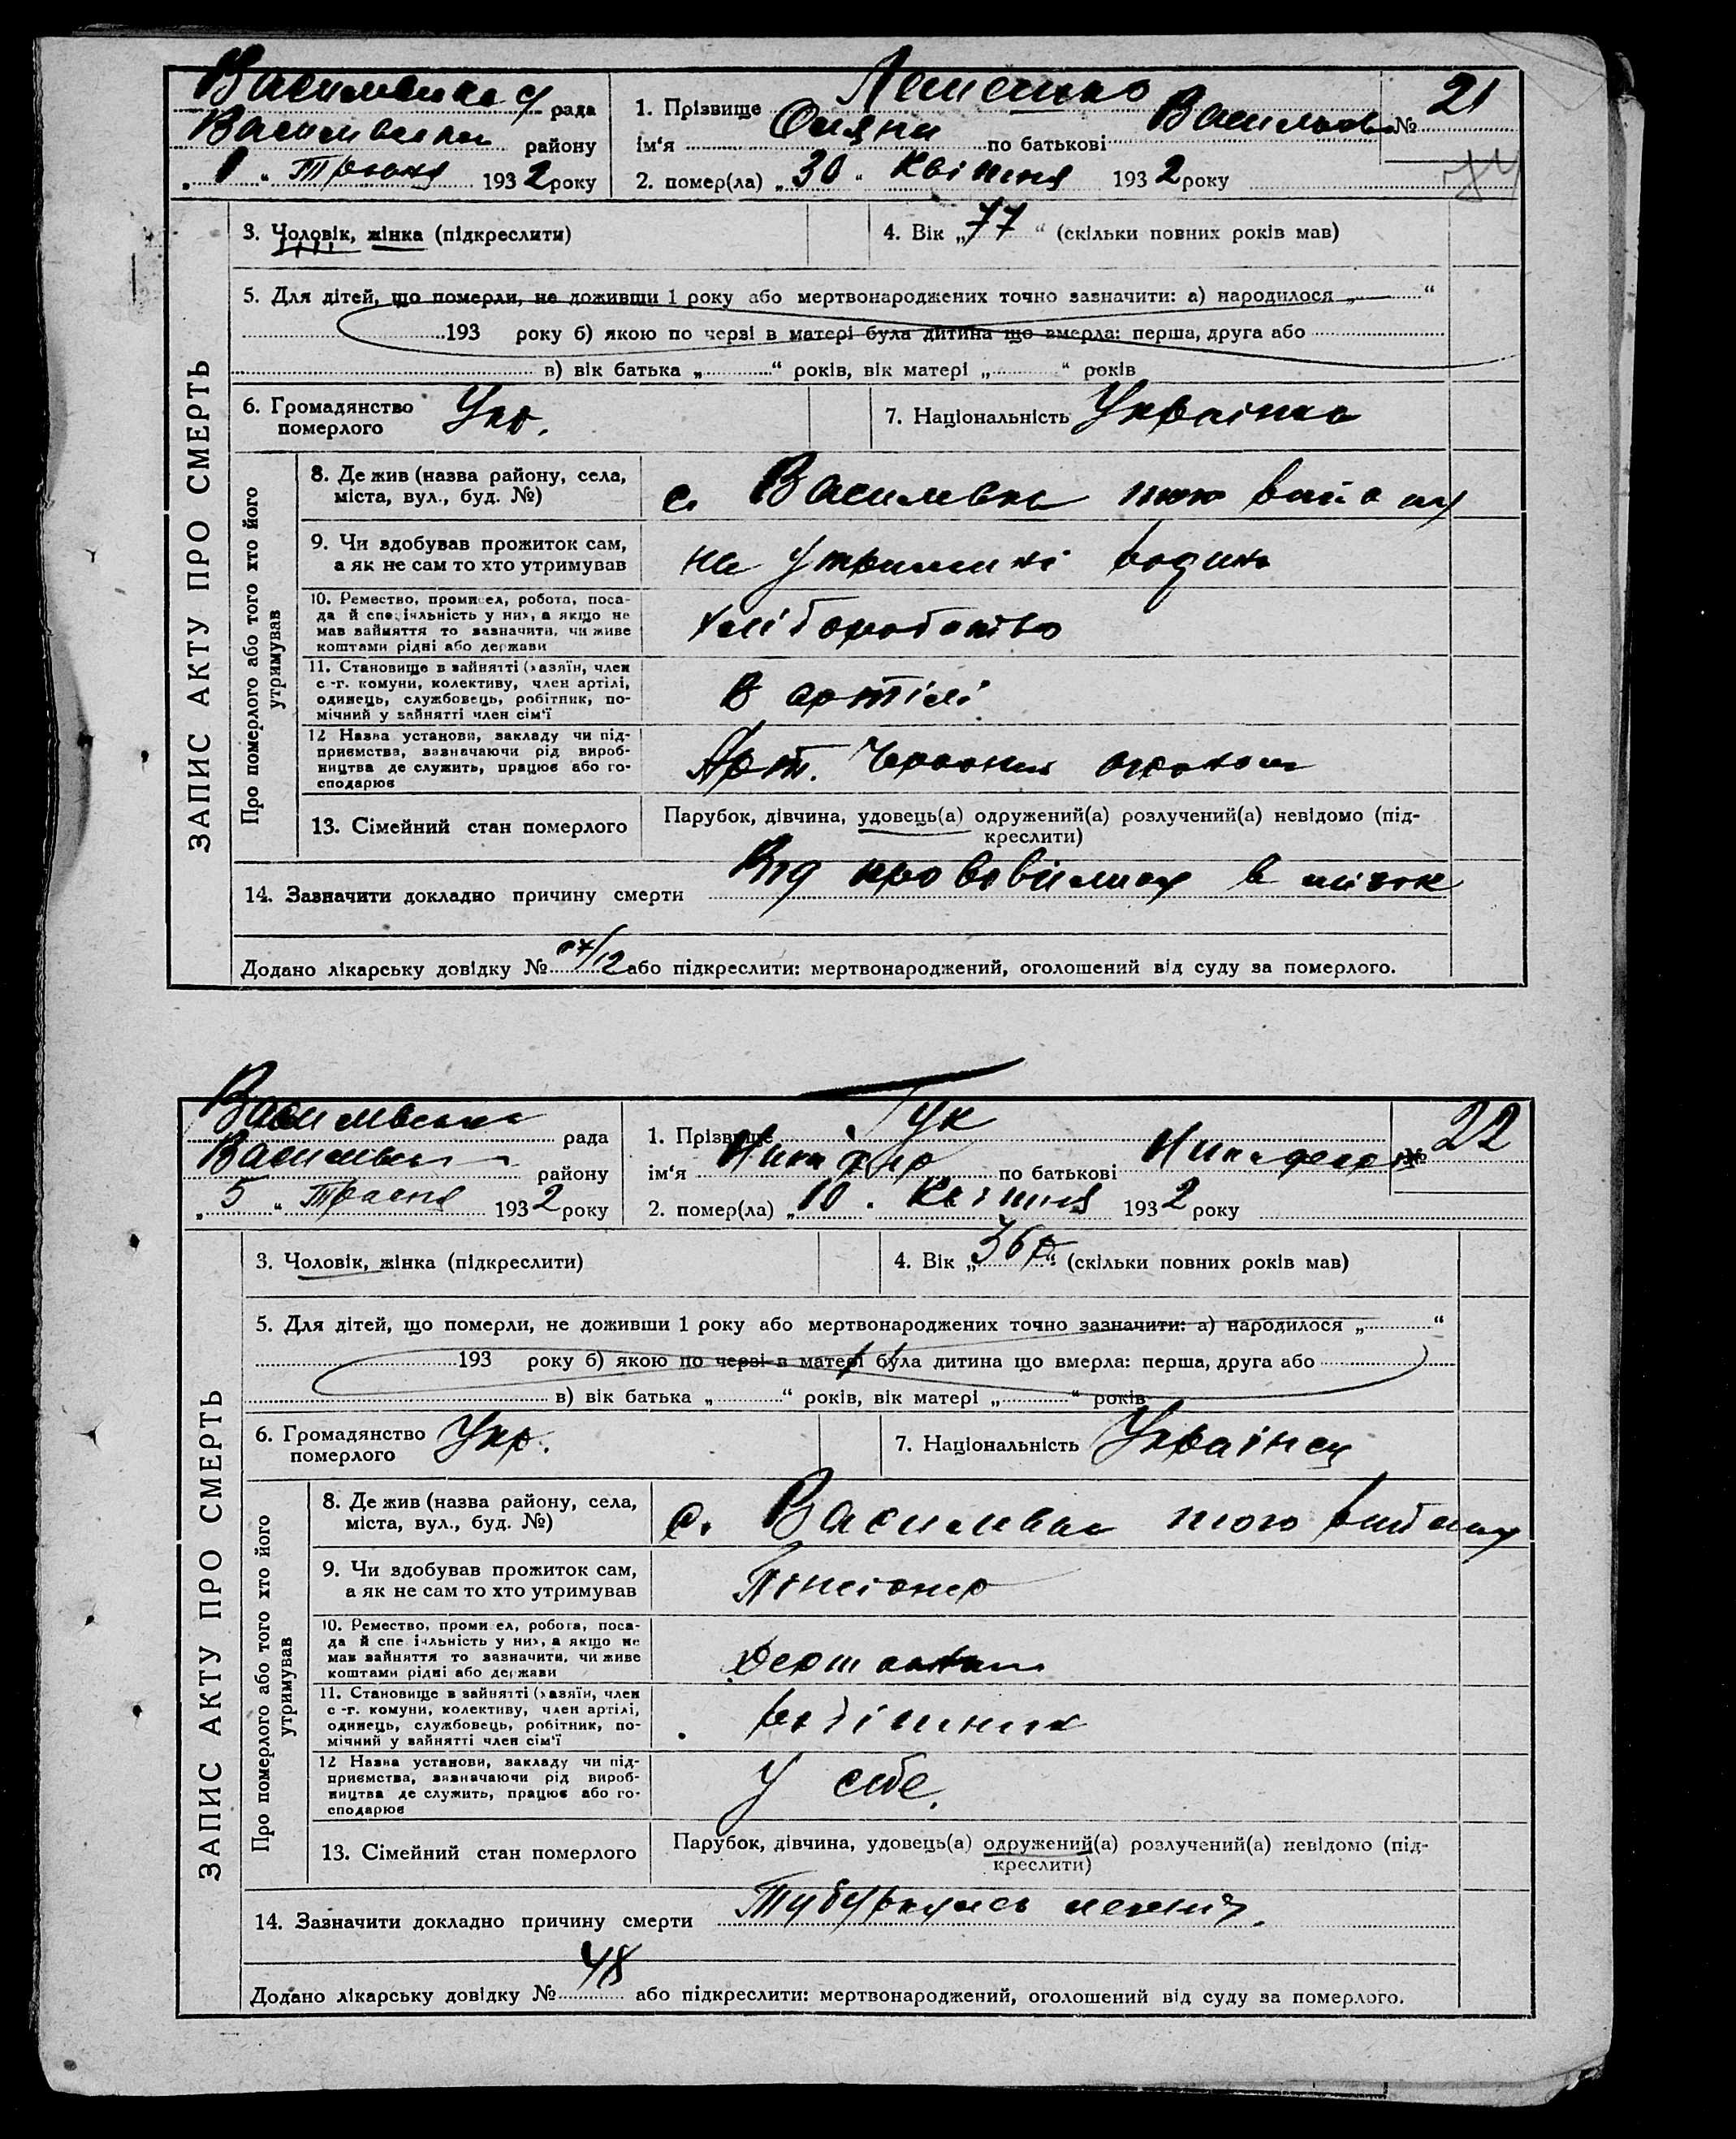 рада
району
193 2 року
1. Прізвище
ім‘я по батькові № 21
2. помер(ла) „30“ Квітня 193 2 року
ЗАПИС АКТУ ПРО СМЕРТЬ
3. Чоловік, жінка (підкреслити)
4. Вік „77“ (скільки повних років мав)
5. Для дітей, що померли, не доживши 1 року або мертвонароджених точно зазначити: а) народилося „ “
193 року б) якою по черзі в матері була дитина що вмерла: перша, друга або
в) вік батька „ “ років, вік матері „ “ років
6. Громадянство померлого Укр.
7. Національність Українка
Про померлого або того хто його утримував
8. Де жив (назва району, села,
міста, вул., буд. №)
с. Василівка того району
9. Чи здобував прожиток сам,
а як не сам то хто утримував
на утриманні родини
10. Ремество, промисел, робота, поса-
да й спеціяльність у них, а якщо не
мав зайняття то зазначити, чи живе
коштами рідні або держави
хліборобство
11. Становище в зайнятті (хазяїн, член
с.-г. комуни, колективу, член артілі,
одинець, службовець, робітник, по-
мічний у зайнятті член сім‘ї
в артілі
12 Назва установи, закладу чи під-
приємства, зазначаючи рід вироб-
ництва де служить, працює або го-
сподарює
Арт.
13. Сімейний стан померлого
Парубок, дівчина, удовець(а) одружений(а) розлучений(а) невідомо (під-
креслити)
14. Зазначити докладно причину смерти Від в мізок
Додано лікарську довідку № або підкреслити: мертвонароджений, оголошений від суду за померлого.
рада
району
„5“ Травня 193 2 року
1. Прізвище Гук
ім‘я по батькові № 22
2. помер(ла) „10“ Квітня 193 2 року
ЗАПИС АКТУ ПРО СМЕРТЬ
3. Чоловік, жінка (підкреслити)
4. Вік „36 р“ (скільки повних років мав)
5. Для дітей, що померли, не доживши 1 року або мертвонароджених точно зазначити: а) народилося „ “
193 року б) якою по черзі в матері була дитина що вмерла: перша, друга або
в) вік батька „ “ років, вік матері „ “ років
6. Громадянство померлого Укр.
7. Національність Українец
Про померлого або того хто його утримував
8. Де жив (назва району, села,
міста, вул., буд. №)
с. Василівка того району
9. Чи здобував прожиток сам,
а як не сам то хто утримував
Пенсіонер
10. Ремество, промисел, робота, поса-
да й спеціяльність у них, а якщо не
мав зайняття то зазначити, чи живе
коштами рідні або держави
11. Становище в зайнятті (хазяїн, член
с.-г. комуни, колективу, член артілі,
одинець, службовець, робітник, по-
мічний у зайнятті член сім‘ї
робітник
12 Назва установи, закладу чи під-
приємства, зазначаючи рід вироб-
ництва де служить, працює або го-
сподарює
У себе.
13. Сімейний стан померлого
Парубок, дівчина, удовець(а) одружений(а) розлучений(а) невідомо (під-
креслити)
14. Зазначити докладно причину смерти Туберкульс легенів.
Додано лікарську довідку № 48 або підкреслити: мертвонароджений, оголошений від суду за померлого.